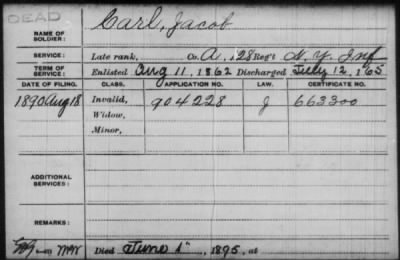 DEAD
NAME OF SOLDIER: Carl, Jacob
SERVICE: Late rank, Co. A, 128 Reg't N.Y. Inf
TERM OF SERVICE: Enlisted Aug 11, 1862 Discharged July 12, 1865
DATE OF FILING. CLASS. APPLICATION NO. LAW. CERTIFICATE NO.
1890 Aug 18 Invalid, 904228 J 663300
Widow,
Minor,
ADDITIONAL SERVICES:
REMARKS:
Died June 1", 1895, at